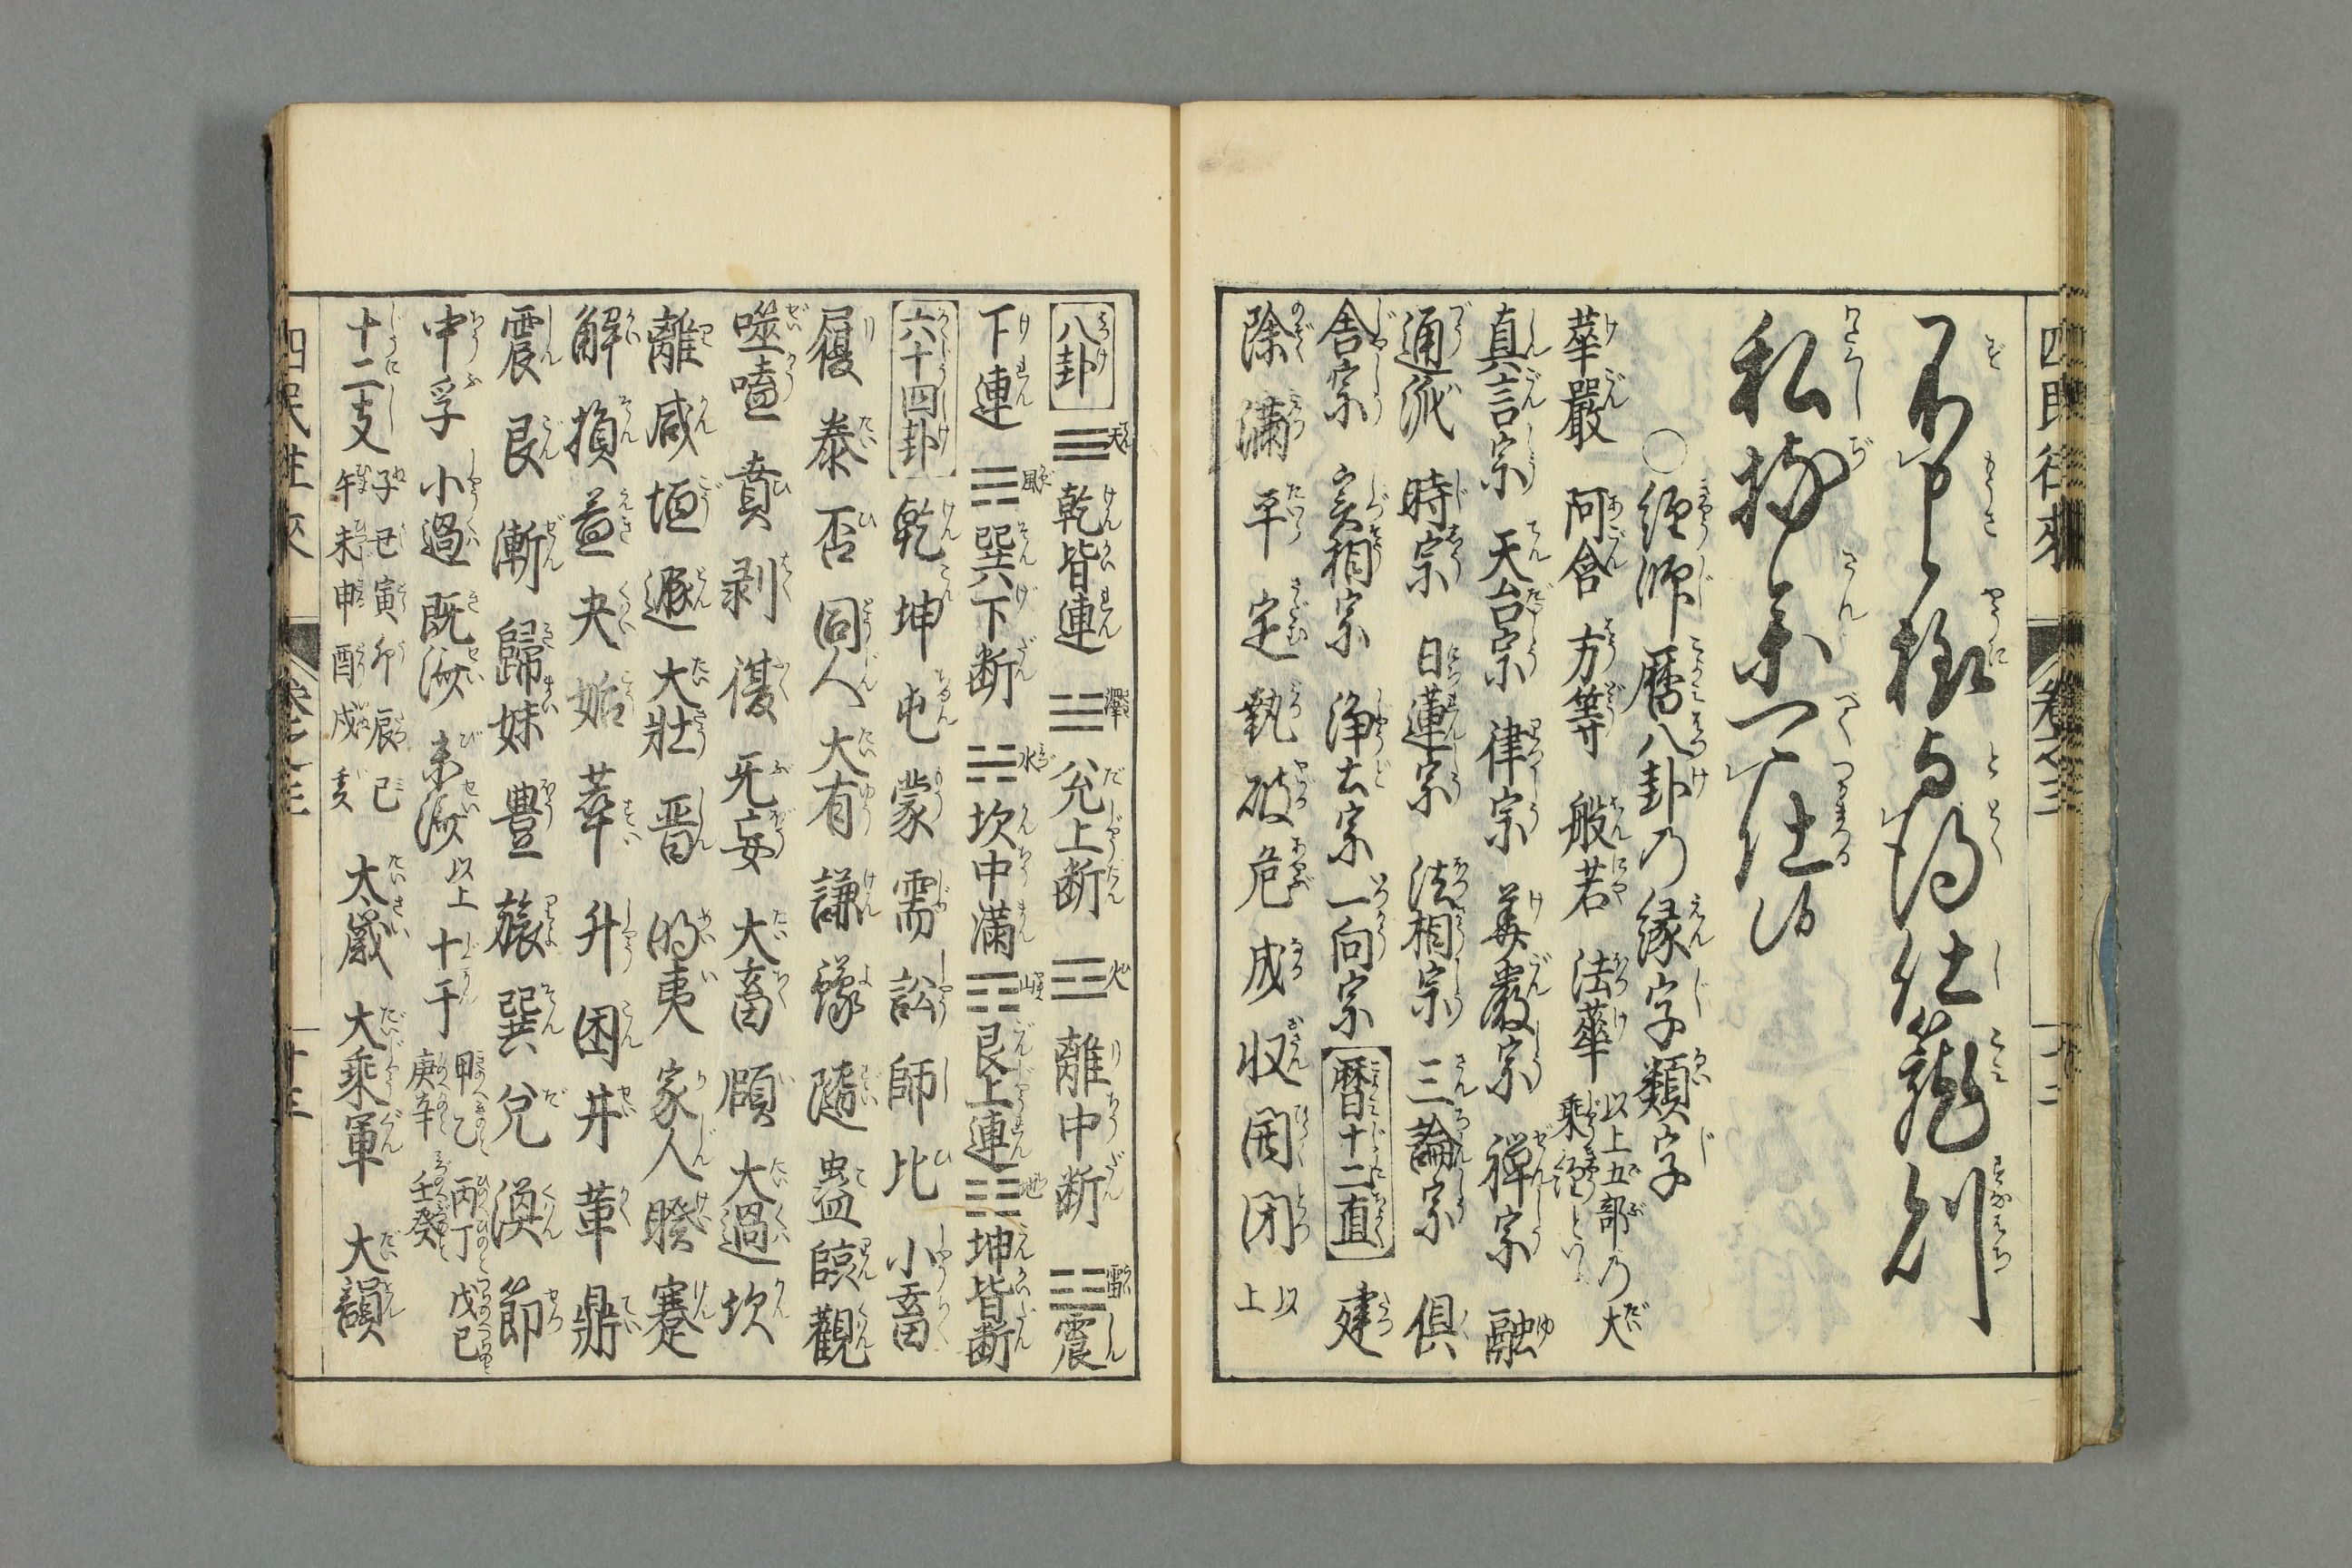 四民往来 巻之三 十二
不申極与得仕罷
私娚参可仕候
〇經師暦八卦の縁字類字
華嚴 阿含 方等 般若 法華 以上五部の大乗經といふ
真言宗 天台宗 律宗 華嚴宗 禅宗 融
通派 時宗 日蓮宗 法相宗 三論宗 倶
舎宗 実相宗 浄土宗 一向宗 暦十二直 建
除 満 平 定 執 破 危 成 収 開 闭 以上
八卦 ☰天 乾皆連 ☱澤 兊上断 ☲火 離中断 ☳雷 震
下連 ☴風 巽下断 ☵水 坎中満 ☶山 艮上連 ☷地 坤皆断
六十四卦 乾 坤 屯 蒙 需 訟 師 比 小畜
履 泰 否 同人 大有 謙 豫 隨 蠱 臨 觀
噬嗑 賁 剥 復 无妄 大畜 頤 大過 坎
離 咸 恒 遯 大壮 晋 明夷 家人 睽 蹇
解 損 益 夬 姤 萃 升 困 井 革 鼎
震 艮 漸 歸妹 豊 旅 巽 兌 渙 節
中孚 小過 既済 未済 以上 十干 甲乙 丙丁 戊己 庚辛 壬癸
十二支 子丑寅卯辰巳 午未申酉戌亥 大歳 大乗軍 大韻
四民往来 巻之三 十三